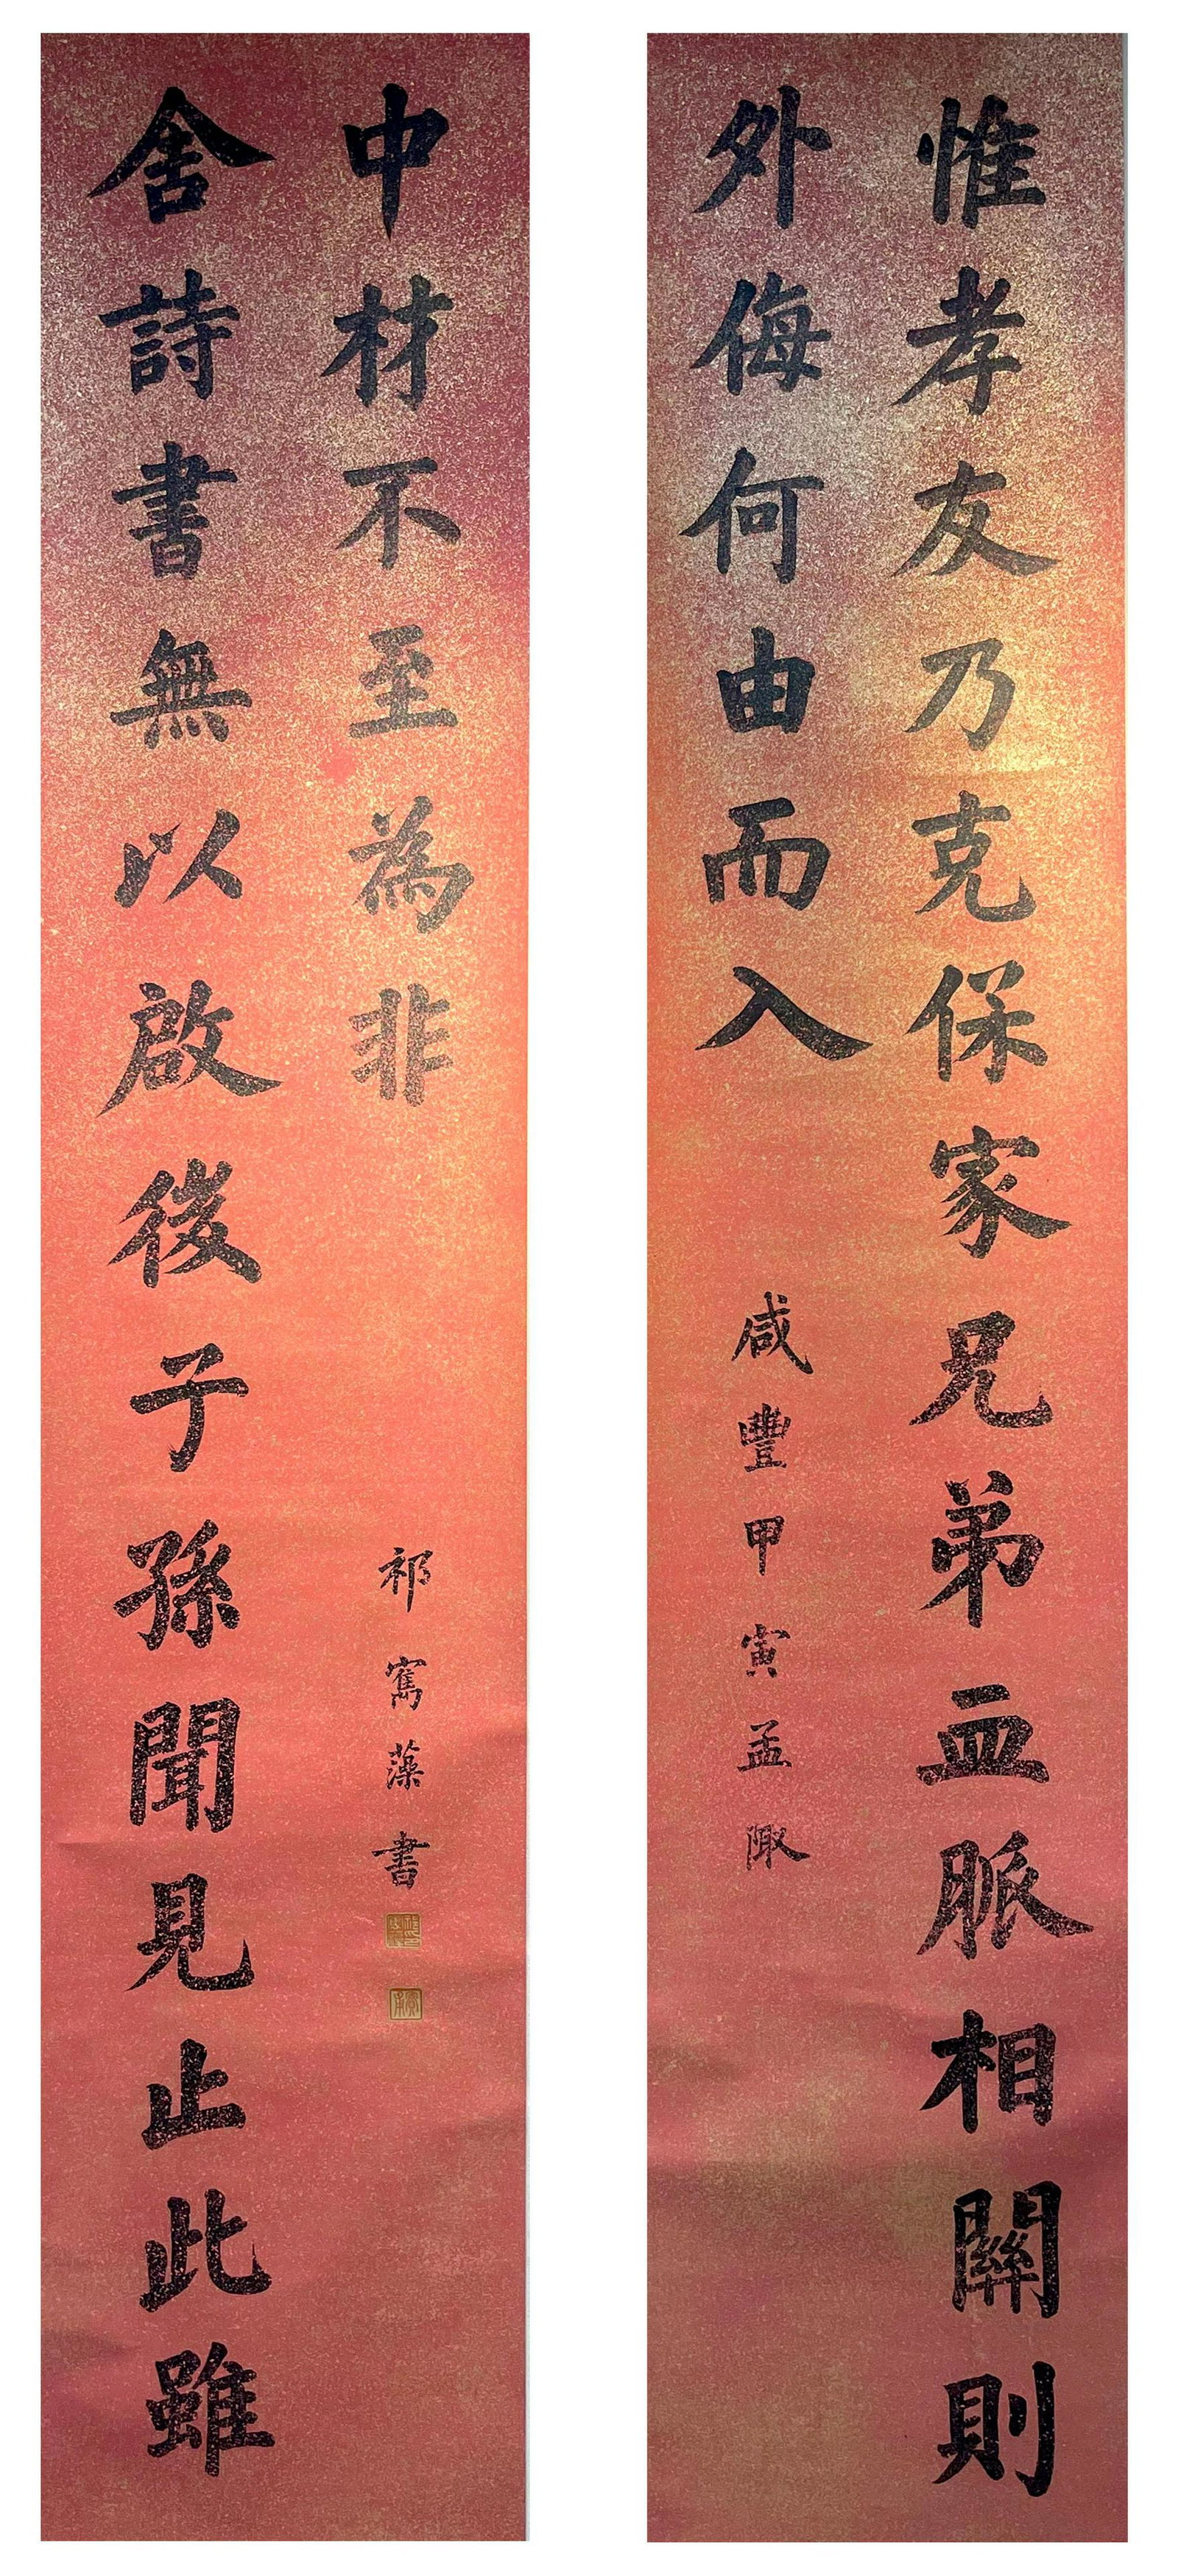 惟孝友乃克保家兄弟血脈相關則
外侮何由而入
咸豐甲寅孟陬
舍詩書無以啟後子孫聞見止此雖
中材不至為非
祁寯藻書